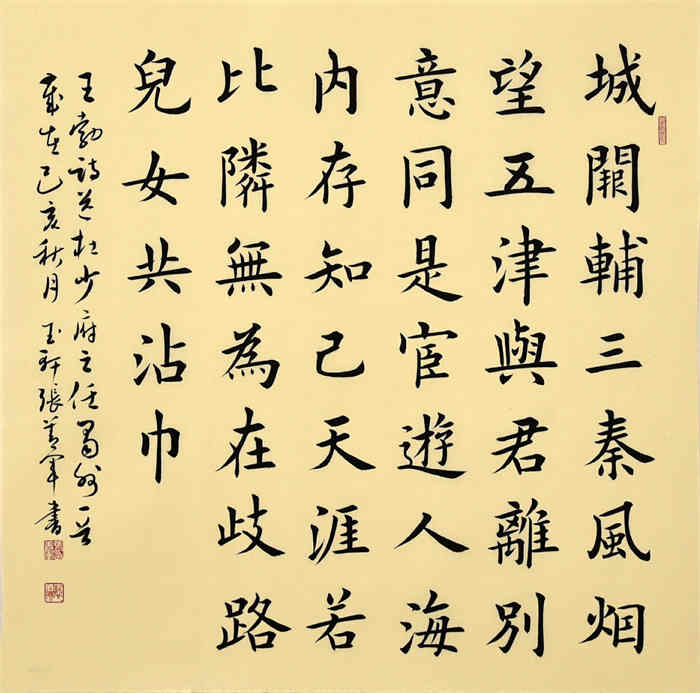 城闕輔三秦風烟
望五津與君離別
意同是宦遊人海
内存知己天涯若
比隣無為在歧路
兒女共沾巾
王勃詩送杜少府之任蜀州一首
歲在己亥秋月 玉軒張善軍書